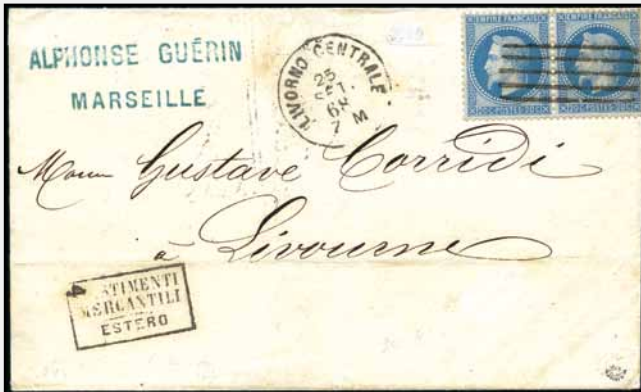 ALPHONSE GUÉRIN
MARSEILLE
LIVORNO CENTRALE
25
SET.
7 M
EMPIRE FRANÇAIS
20 C POSTES 20 C
EMPIRE FRANÇAIS
20 C POSTES 20 C
Gustave Corridi
à Livourne
BASTIMENTI
MERCANTILI
ESTERO